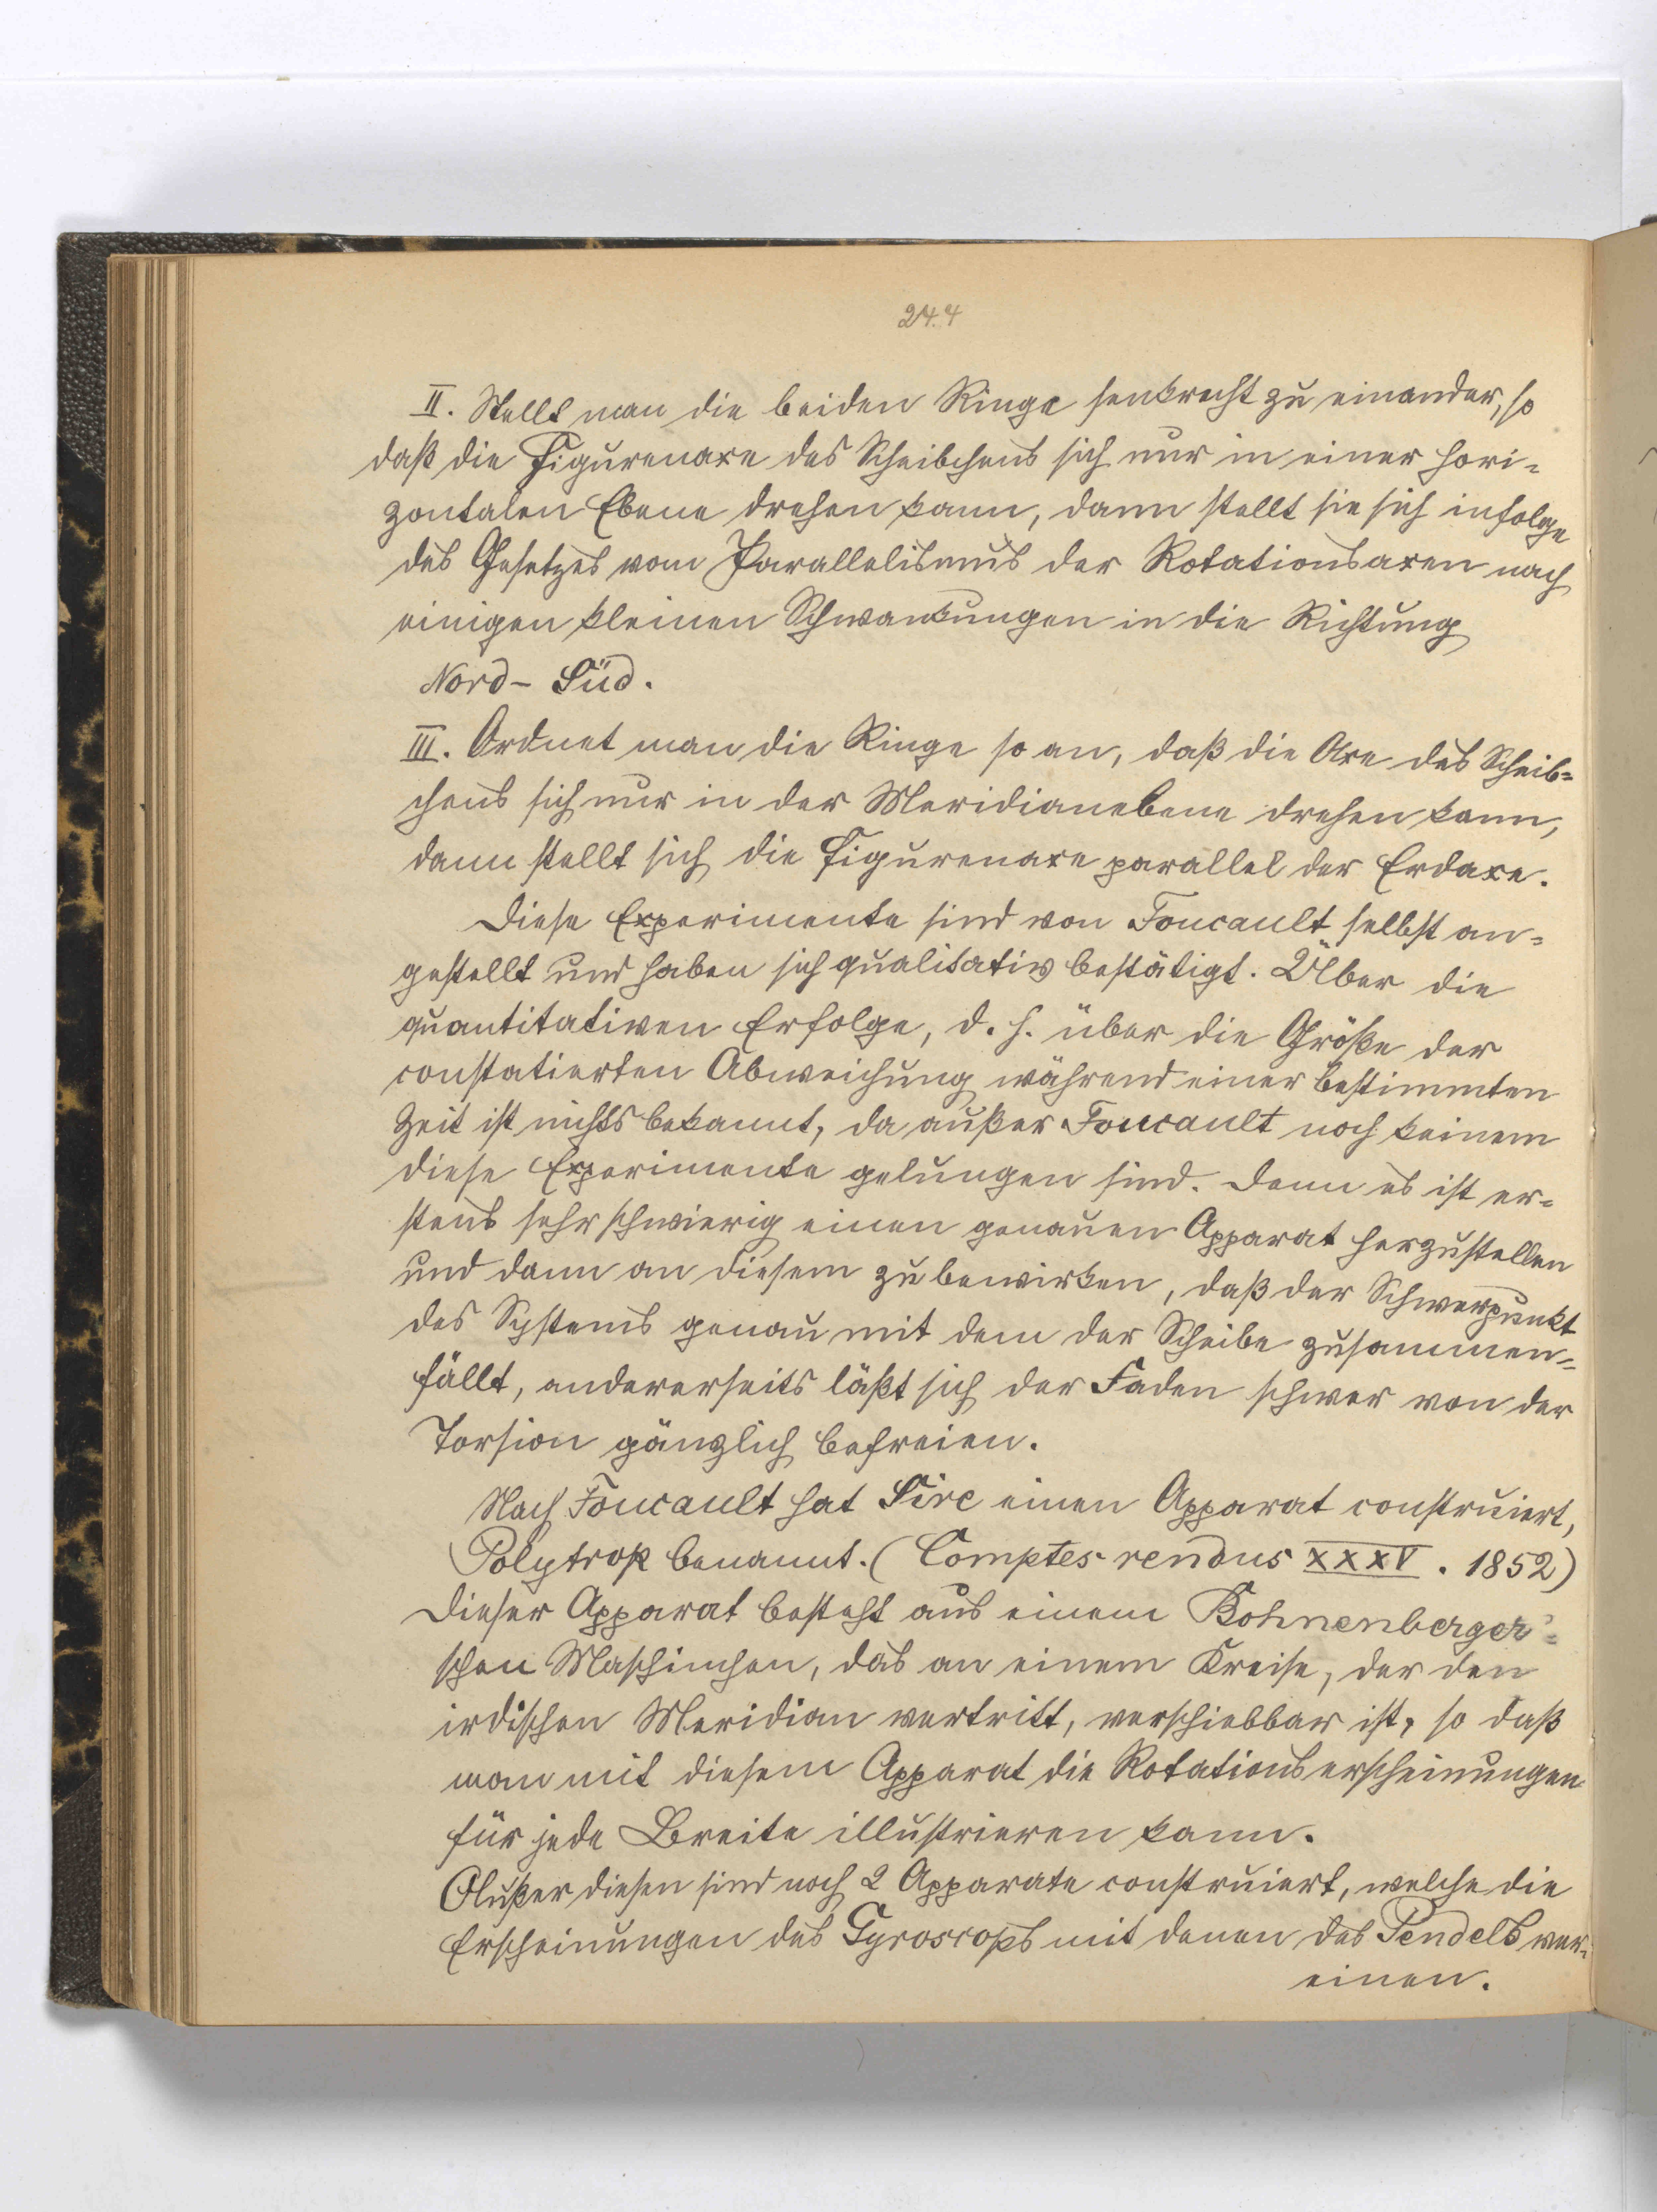 244
II. Stellt man die beiden Ringe senkrecht zu einander, so
daß die Figurenaxe des Scheibchens sich nur in einer hori-
zontalen Ebene drehen kann, dann stellt sie sich infolge
des Gesetzes vom Parallelismus der Rotationsaxen nach
einigen kleinen Schwankungen in die Richtung
Nord- Süd.
III. Ordnet man die Ringe so an, daß die Axe des Scheib-
chens sich nur in der Meridianebene drehen kann,
dann stellt sich die Figurenaxe parallel der Erdaxe.
Diese Experimente sind von Foucault selbst an-
gestellt und haben sich qualitativ bestätigt. Über die
quantitativen Erfolge, d. h. über die Größe der
constatierten Abweichung während einer bestimmten
Zeit ist nichts bekannt, da außer Foucault noch keinem
diese Experimente gelungen sind. Denn es ist er-
stens sehr schwierig einen genauen Apparat herzustellen
und dann an diesem zu bewirken, daß der Schwerpunkt
des Systems genau mit dem der Scheibe zusammen-
fällt, andererseits läßt sich der Faden schwer von der
Torsion gänzlich befreien.
Nach Foucault hat Sire einen Apparat construiert,
Polytrop benannt. (Comptes rendus XXXV. 1852)
Dieser Apparat besteht aus einem Bohnenberger'-
schen Maschinchen, das an einem Kreise, der den
irdischen Meridian vertritt, verschiebbar ist, so daß
man mit diesem Apparat die Rotationserscheinungen
für jede Breite illustrieren kann.
Außer diesen sind noch 2 Apparate construiert, welche die
Erscheinungen des Gyroscops mit denen des Pendels ver-
einen.